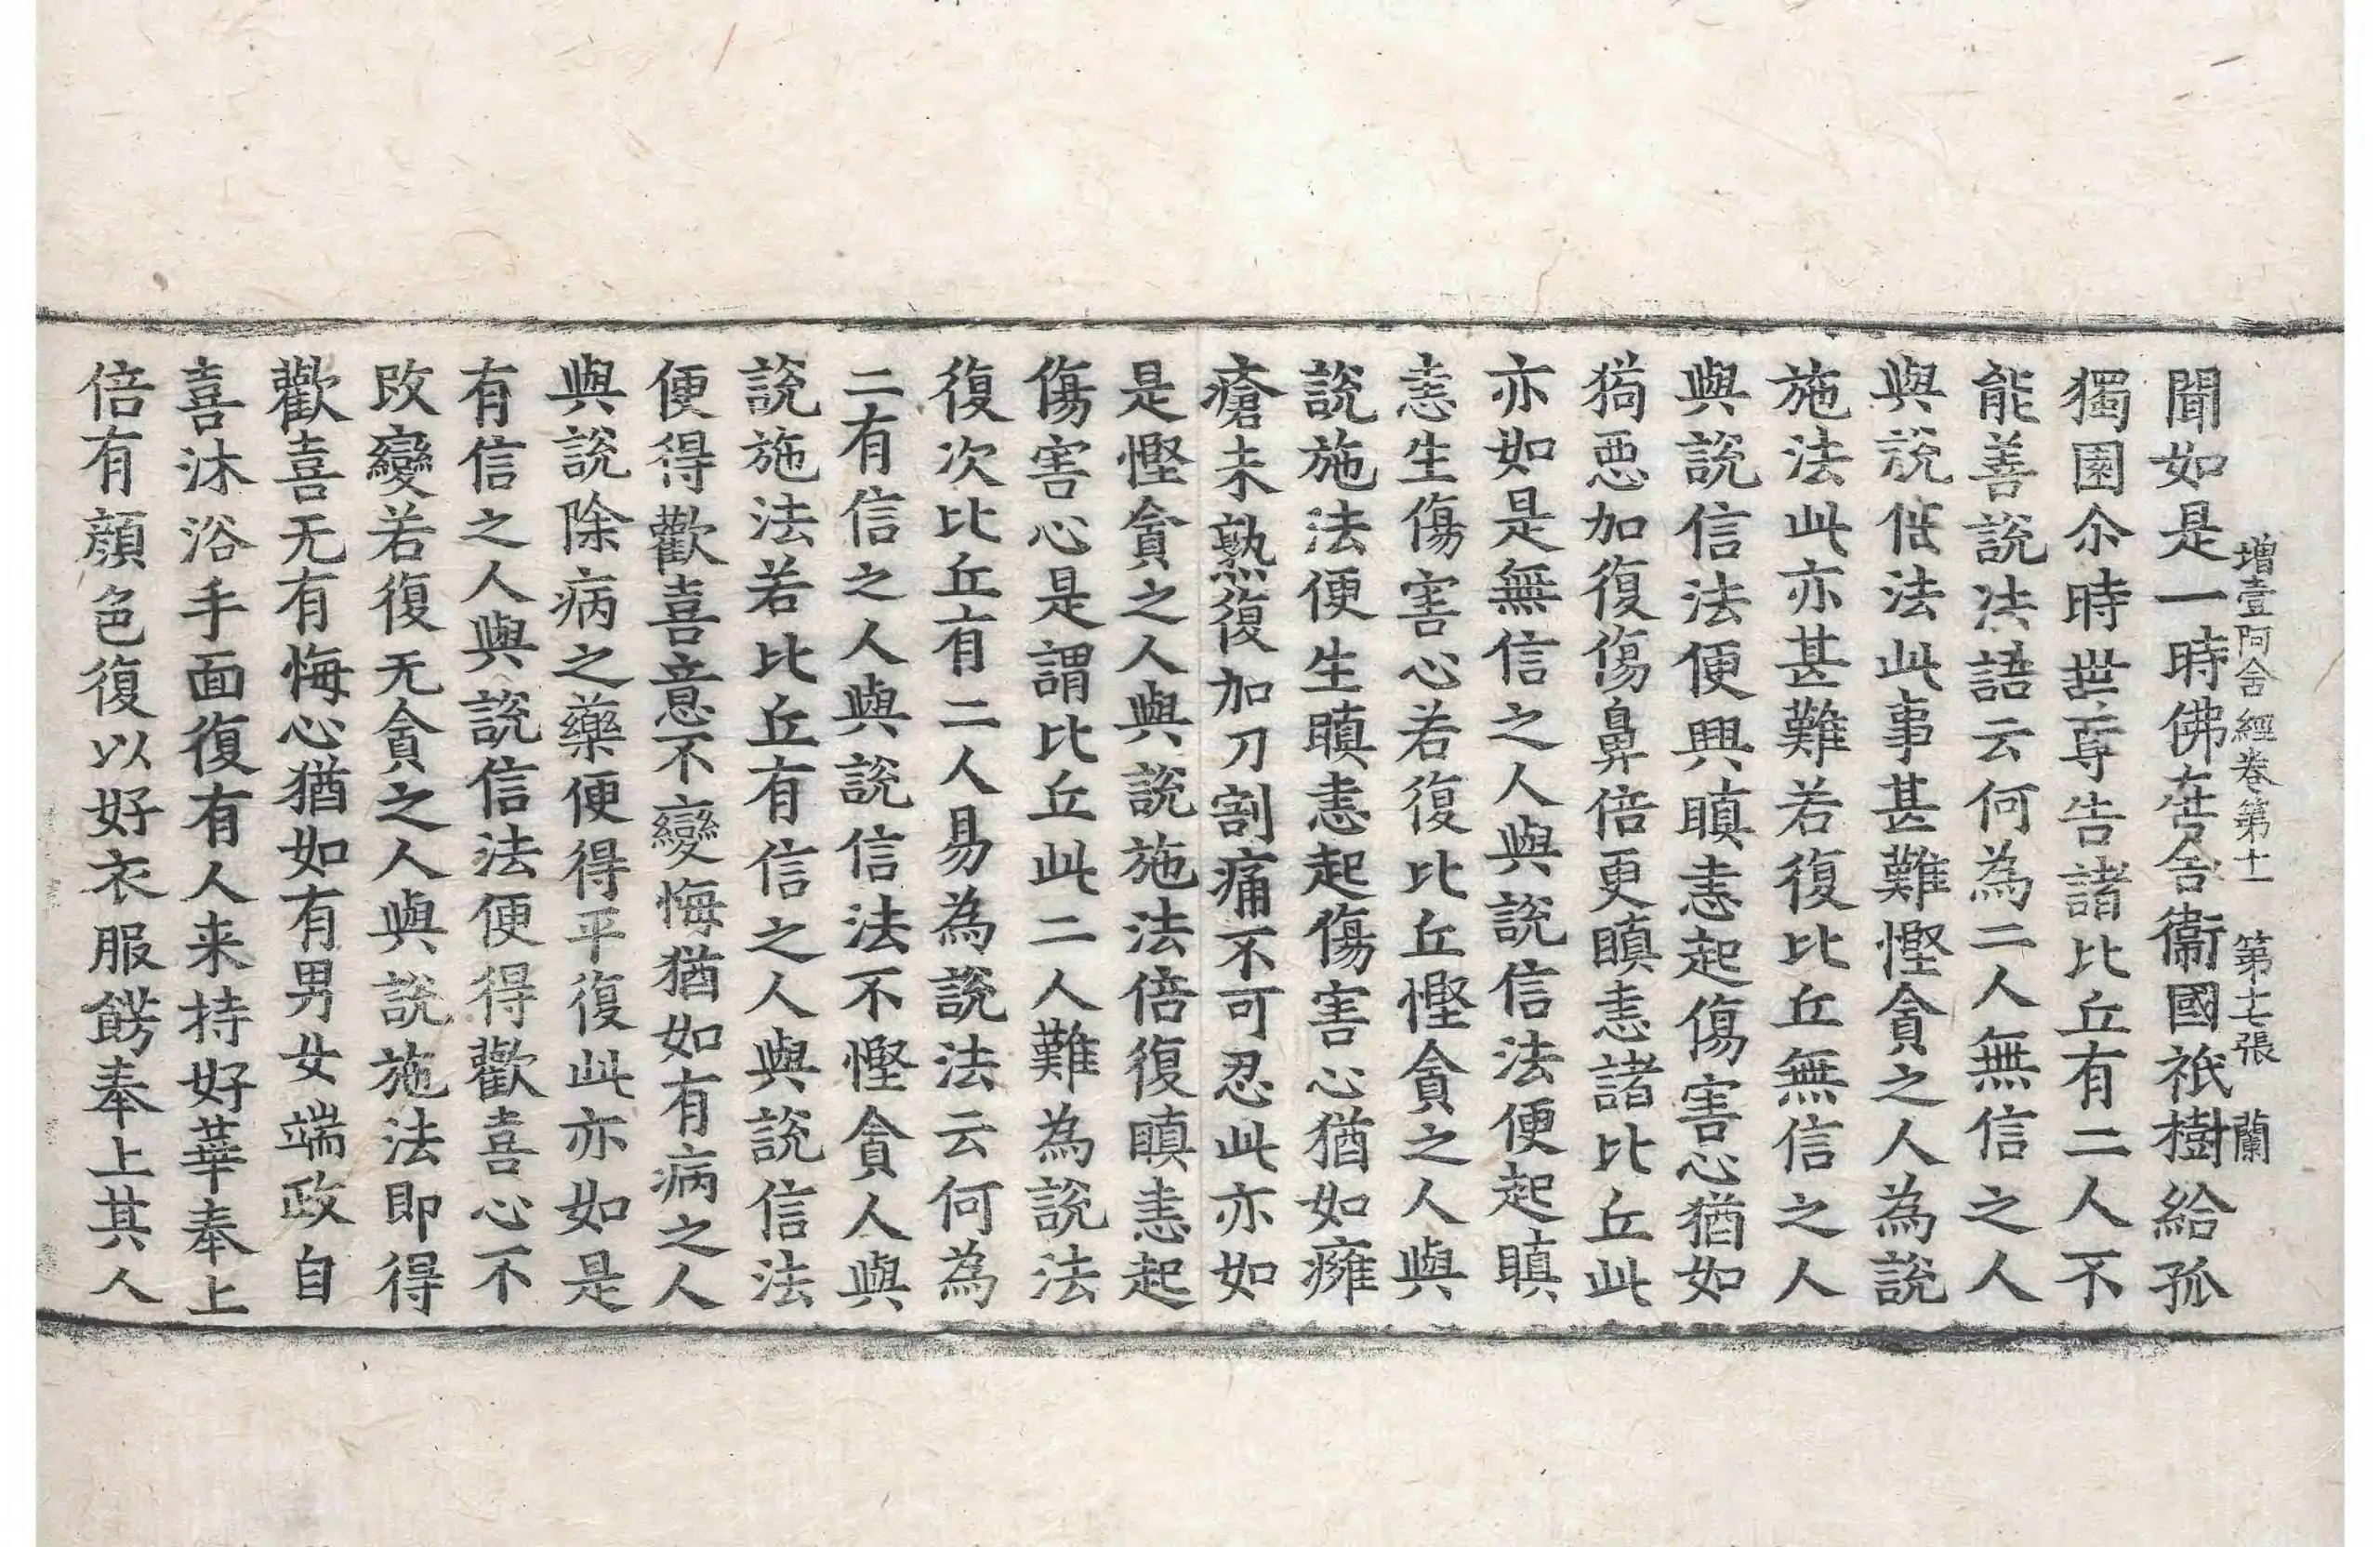 增壹阿含經卷第十一 第七張 蘭
聞如是一時佛在舍衞國祇樹給孤
獨園尒時世尊告諸比丘有二人不
能善說法語云何為二人無信之人
與說信法此事甚難慳貪之人為說
施法此亦甚難若復比丘無信之人
與說信法便興瞋恚起傷害心猶如
狗惡加復傷鼻倍更瞋恚諸比丘此
亦如是無信之人與說信法便起瞋
恚生傷害心若復比丘慳貪之人與
說施法便生瞋恚起傷害心猶如癰
瘡未熟復加刀割痛不可忍此亦如
是慳貪之人與說施法倍復瞋恚起
傷害心是謂比丘此二人難為說法
復次比丘有二人易為說法云何為
二有信之人與說信法不慳貪人與
說施法若比丘有信之人與說信法
便得歡喜意不變悔猶如有病之人
與說除病之藥便得平復此亦如是
有信之人與說信法便得歡喜心不
改變若復无貪之人與說施法即得
歡喜无有悔心猶如有男女端政自
喜沐浴手面復有人来持好華奉上
倍有顏色復以好衣服餝奉上其人